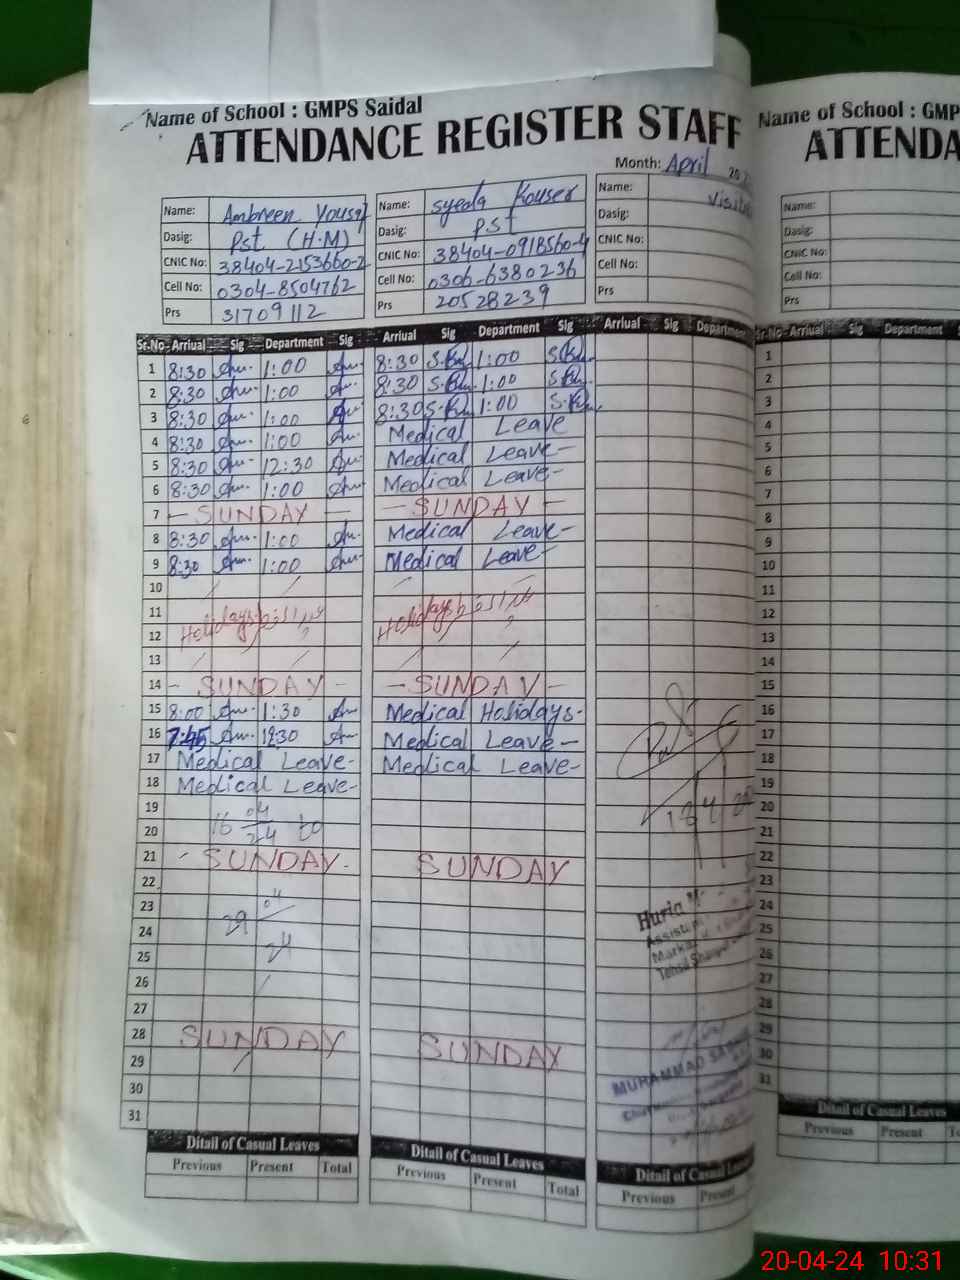 Name of School : GMPS Saidal
ATTENDANCE REGISTER STAFF
Month: April
Name: Ambreen Yousaf
Dasig: Pst (H.M)
CNIC No: 38404-2153660-2
Cell No: 0304-8504762
Prs 31709112
Name: Syeda Kouser
Dasig: P.S.t
CNIC No: 38404-0918560-4
Cell No: 0306-6380236
Prs 20528239
Name:
Dasig:
CNIC No:
Cell No:
Prs
Sr.No Arriual Sig Department Sig Arriual Sig Department Sig Arriual Sig
1 8:30 1:00 8:30 1:00
2 8:30 1:00 8:30 1:00
3 8:30 1:00 8:30 1:00
4 8:30 1:00 Medical Leave
5 8:30 12:30 Medical Leave-
6 8:30 1:00 Medical Leave-
7 - SUNDAY - - SUNDAY -
8 8:30 1:00 Medical Leave-
9 8:30 1:00 Medical Leave-
10
11 Holidays Holidays
12
13
14 - SUNDAY - - SUNDAY -
15 8:00 1:30 Medical Holidays-
16 7:45 12:30 Medical Leave-
17 Medical Leave- Medical Leave-
18 Medical Leave-
19
20 16 04/24 to
21 - SUNDAY - SUNDAY
22
23
24 29 04/24
25
26
27
28 SUNDAY SUNDAY
29
30
31
Ditail of Casual Leaves
Previous Present Total
Ditail of Casual Leaves
Previous Present Total
Ditail of Casual
Previous Present
Huria
MUHAMMAD
Name of School : GMP
ATTENDA
Name:
Dasig:
CNIC No:
Cell No:
Prs
Sr.No Arriual Sig Department
1
2
3
4
5
6
7
8
9
10
11
12
13
14
15
16
17
18
19
20
21
22
23
24
25
26
27
28
29
30
31
Ditail of Casual Leaves
Previous Present
20-04-24 10:31